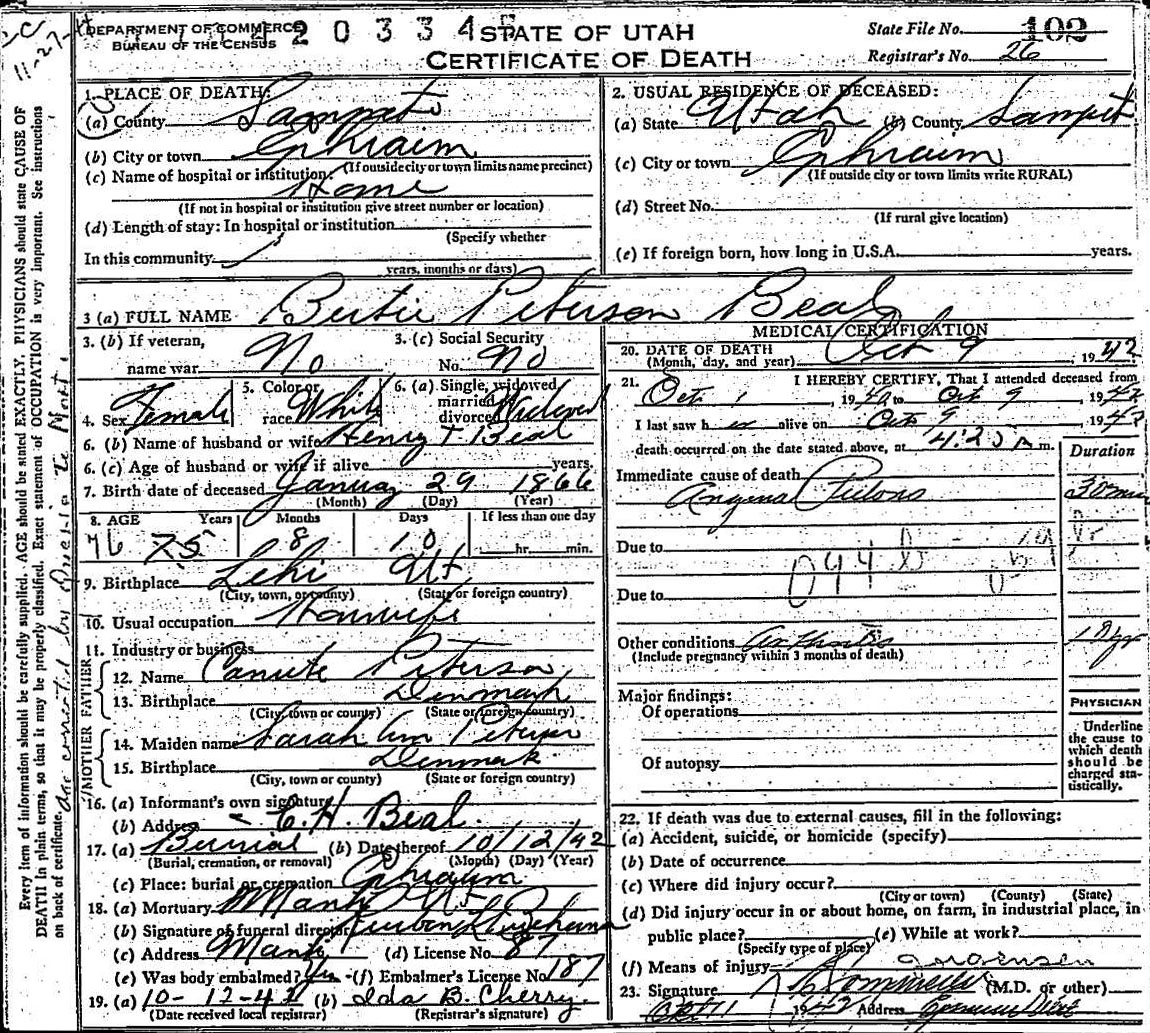 DEPARTMENT OF COMMERCE
BUREAU OF THE CENSUS
2 0 3 3 4
STATE OF UTAH
CERTIFICATE OF DEATH
State File No. 102
Registrar's No. 26
11-27-
1. PLACE OF DEATH:
(a) County Sanpete
(b) City or town Ephraim
(If outside city or town limits name precinct)
(c) Name of hospital or institution:
Home
(If not in hospital or institution give street number or location)
(d) Length of stay: In hospital or institution
(Specify whether
In this community
years, months or days)
2. USUAL RESIDENCE OF DECEASED:
(a) State Utah (b) County Sanpete
(c) City or town Ephraim
(If outside city or town limits write RURAL)
(d) Street No.
(If rural give location)
(e) If foreign born, how long in U.S.A. years.
3 (a) FULL NAME Bertie Peterson Beal
3. (b) If veteran,
name war. No
3. (c) Social Security
No. No
4. Sex Female
5. Color or
race White
6. (a) Single, widowed
married
divorced Widowed
6. (b) Name of husband or wife Henry T Beal
6. (c) Age of husband or wife if alive years.
7. Birth date of deceased January 29 1866
(Month) (Day) (Year)
8. AGE Years Months Days If less than one day
76 75 8 10 hr. min.
9. Birthplace Lehi Ut
(City, town, or county) (State or foreign country)
10. Usual occupation Housewife
11. Industry or business
FATHER
12. Name Canute Peterson
13. Birthplace Denmark
(City, town or county) (State or foreign country)
MOTHER
14. Maiden name Sarah Ann Peterson
15. Birthplace Denmark
(City, town or county) (State or foreign country)
16. (a) Informant's own signature
(b) Address C.H. Beal.
17. (a) Burial (b) Date thereof 10/12/42
(Burial, cremation, or removal) (Month) (Day) (Year)
(c) Place: burial or cremation Ephraim
18. (a) Mortuary Manti Ut
(b) Signature of funeral director
(c) Address Manti (d) License No. 87
(e) Was body embalmed? Yes (f) Embalmer's License No 187
19. (a) 10-12-42 (b) Ida B. Cherry
(Date received local registrar) (Registrar's signature)
MEDICAL CERTIFICATION
20. DATE OF DEATH
(Month, day, and year) Oct 9, 1942
21. I HEREBY CERTIFY, That I attended deceased from
Oct 1, 1940 to Oct 9, 1942
I last saw her alive on Oct 9 1942
death occurred on the date stated above, at 4:20 A m.
Duration
Immediate cause of death
Angina Pectoris 30 min
Due to
044
Due to
Other conditions
(Include pregnancy within 3 months of death)
Major findings:
Of operations
Of autopsy
PHYSICIAN
Underline
the cause to
which death
should be
charged sta-
tistically.
22. If death was due to external causes, fill in the following:
(a) Accident, suicide, or homicide (specify)
(b) Date of occurrence
(c) Where did injury occur?
(City or town) (County) (State)
(d) Did injury occur in or about home, on farm, in industrial place, in
public place? (e) While at work?
(Specify type of place)
(f) Means of injury
23. Signature (M.D. or other)
Oct 11 1942 Address
Every item of information should be carefully supplied. AGE should be stated EXACTLY. PHYSICIANS should state CAUSE OF
DEATH in plain terms, so that it may be properly classified. Exact statement of OCCUPATION is very important. See instructions
on back of certificate.